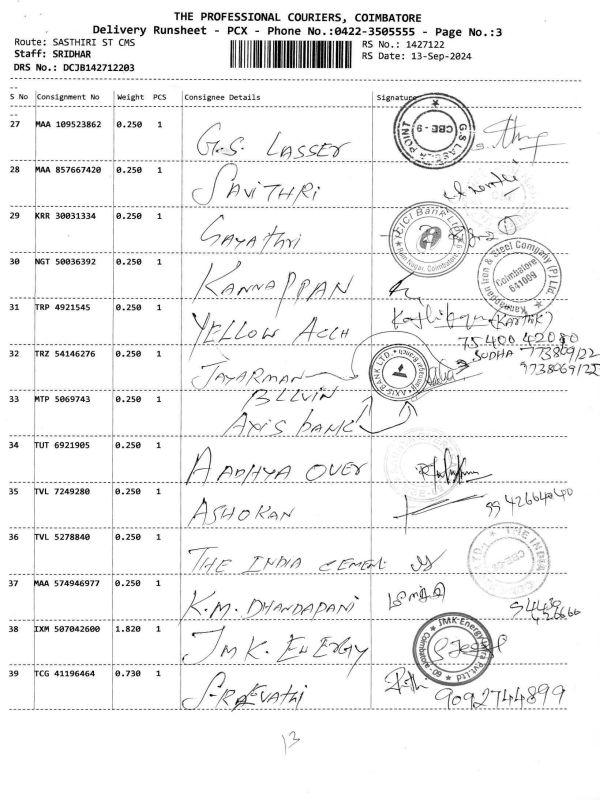 THE PROFESSIONAL COURIERS, COIMBATORE
Delivery Runsheet - PCX - Phone No.:0422-3505555 - Page No.:3
Route: SASTHIRI ST CMS
Staff: SRIDHAR
DRS No.: DCJB142712203
RS No.: 1427122
RS Date: 13-Sep-2024
S No Consignment No Weight PCS Consignee Details Signature
27 MAA 109523862 0.250 1 G.S. LASSER
G S LASER POINT CBE-9
28 MAA 857667420 0.250 1 SAVITHRI
29 KRR 30031334 0.250 1 GAYATHRI
ICICI Bank Ltd. Ram Nagar, Coimbatore
30 NGT 50036392 0.250 1 KANNAPPAN
Kannappan Iron & Steel Company (P) Ltd Coimbatore 641009
31 TRP 4921545 0.250 1 YELLOW ACCH
(KARTHIK)
75400 42080
32 TRZ 54146276 0.250 1 JAYARMAN
AXIS BANK LTD.
SUDHA 773809122
9738069122
33 MTP 5069743 0.250 1 BLLVIN
AXIS BANK
34 TUT 6921905 0.250 1 AADHYA OVER
35 TVL 7249280 0.250 1 ASHOKAN
9942664040
36 TVL 5278840 0.250 1 THE INDIA CEMENT
THE INDIA
37 MAA 574946977 0.250 1 K.M. DHANDAPANI
38 IXM 507042600 1.820 1 JMK. ENERGY
JMK Energy Infra Pvt Ltd Coimbatore - 09
39 TCG 41196464 0.730 1 S-REVATHI
9092744899
13